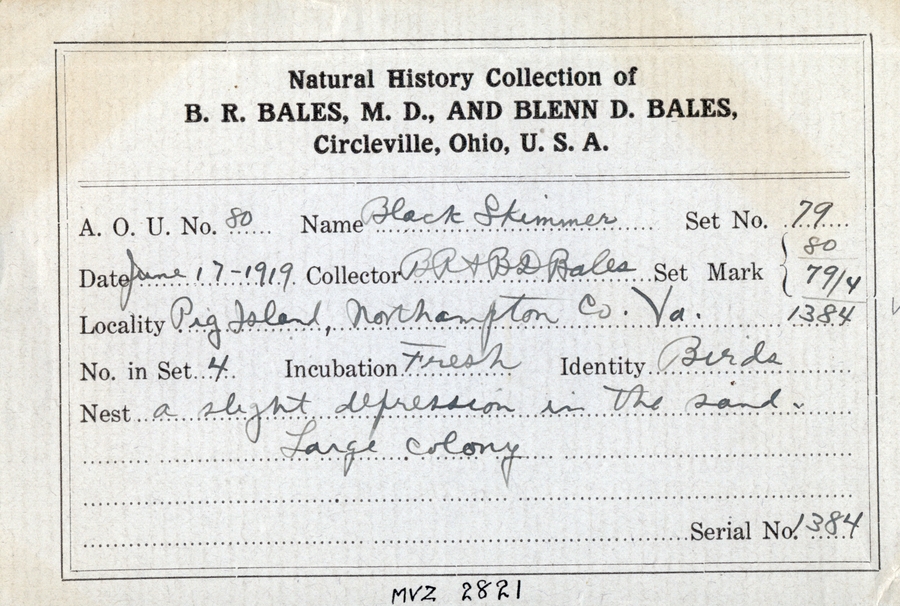 Natural History Collection of
B. R. BALES, M. D., AND BLENN D. BALES,
Circleville, Ohio, U. S. A.
A. O. U. No. 80 Name Black Skimmer Set No. 79
Date June 17-1919 Collector BR & BD Bales Set Mark { 80
79/4
Locality Pig Island, Northampton Co. Va. 1384
No. in Set 4 Incubation Fresh Identity Birds
Nest a slight depression in the sand.
Large colony
Serial No. 1384
MVZ 2821